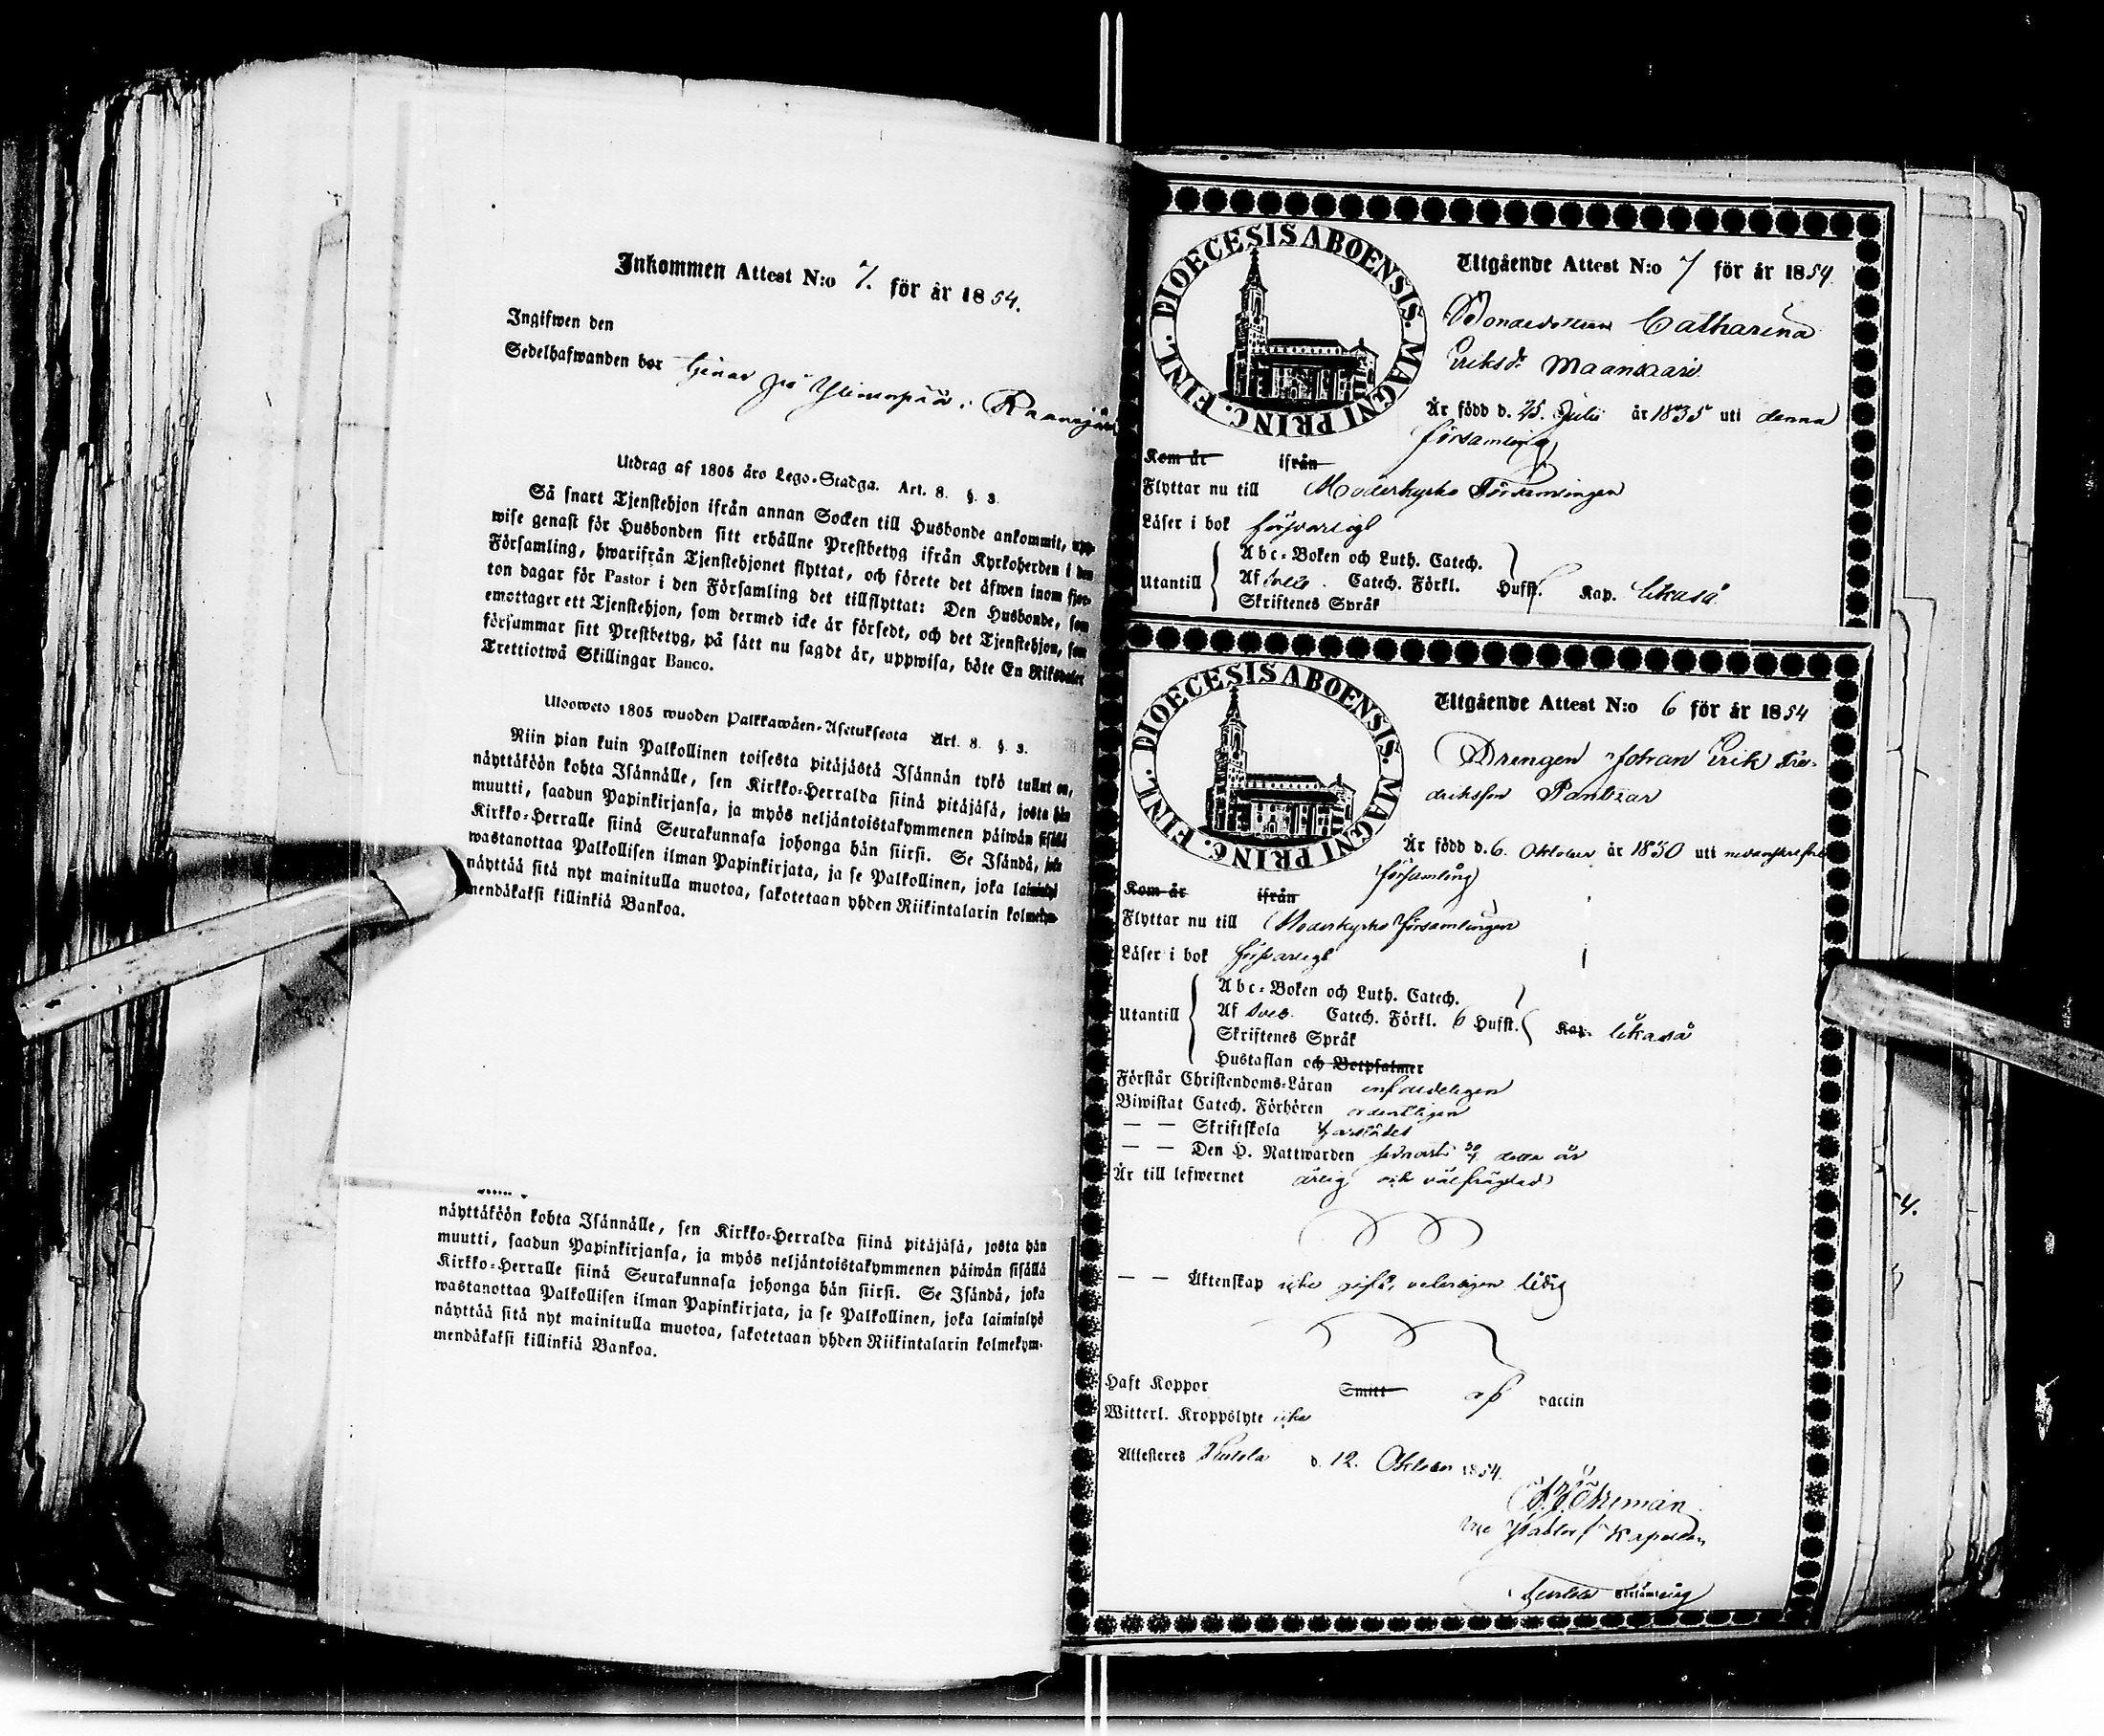 Inkommen Attest N:o 7. för år 1854.
Ingifwen den
Sedelhafwanden bor tjenar på i
Utdrag af 1805 års Lego-Stadga. Art. 8. §. 3.
Så snart Tjenstehjon ifrån annan Socken till Husbonde ankommit, upp-
wise genast för Husbonden sitt erhållne Prestbetyg ifrån Kyrkoherden i den
Församling, hwarifrån Tjenstehjonet flyttat, och förete det äfwen inom fjor-
ton dagar för Pastor i den Församling det tillflyttat: Den Husbonde, som
emottager ett Tjenstehjon, som dermed icke är försedt, och det Tjenstehjon, som
försummar sitt Prestbetyg, på sätt nu sagdt är, uppwisa, böte En Riksdaler
Trettiotwå Skillingar Banco.
Ulosweto 1805 wuoden Palkkawäen-Asetuksesta Art. 8. §. 3.
Niin pian kuin Palkollinen toisesta pitäjästä Isännän tykö tullut on,
näyttäköön kohta Isännälle, sen Kirkko-Herralda siinä pitäjäsä, josta hän
muutti, saadun Papinkirjansa, ja myös neljäntoistakymmenen päiwän sisällä
Kirkko-Herralle siinä Seurakunnasa johonga hän siirsi. Se Isändä, joka
wastanottaa Palkollisen ilman Papinkirjata, ja se Palkollinen, joka laiminlyö
näyttää sitä nyt mainitulla muotoa, sakotetaan yhden Riikintalarin kolmekym-
mendäkaksi killinkiä Bankoa.
näyttäköön kohta Isännälle, sen Kirkko-Herralda siinä pitäjäsä, josta hän
muutti, saadun Papinkirjansa, ja myös neljäntoistakymmenen päiwän sisällä
Kirkko-Herralle siinä Seurakunnasa johonga hän siirsi. Se Isändä, joka
wastanottaa Palkollisen ilman Papinkirjata, ja se Palkollinen, joka laiminlyö
näyttää sitä nyt mainitulla muotoa, sakotetaan yhden Riikintalarin kolmekym-
mendäkaksi killinkiä Bankoa.
DIOECESIS ABOENSIS. MAGNI PRINC. FINL.
Utgående Attest N:o 7 för år 1854.
Bondedottren Catharina
Eriksdr Maansaari
Är född d. 25. Julii år 1835 uti denna
församling
Kom år ifrån
Flyttar nu till Moderkyrko Församlingen
Läser i bok försvarligt
Abc-Boken och Luth. Catech.
Utantill Af Sveb. Catech. Förkl. Husst. Kap. likaså
Skriftenes Språk
DIOECESIS ABOENSIS. MAGNI PRINC. FINL.
Utgående Attest N:o 6 för år 1854
Drengen Johan Erik Fre-
driksson Pantzar
Är född d. 6. Oktober år 1830 uti
församling
Kom år ifrån
Flyttar nu till Moderkyrko församlingen
Läser i bok försvarligt
Abc-Boken och Luth. Catech.
Utantill Af Sveb. Catech. Förkl. 6 Husst. Kap. likaså
Skriftenes Språk
Hustaflan och Botpsalmer
Förstår Christendoms-Läran enfaldeligen
Biwistat Catech. Förhören ordentligen
— — Skriftskola
— — Den H. Nattwarden sednast 30/7 detta år
Är till lefwernet ärlig och välfrägdad
— — Äktenskap icke gift, veterligen ledig
Haft Koppor Smitt af vaccin
Witterl. Kroppslyte icke
Attesteras d. 12. Oktober 1854.
Vice Pastor Kapellan
Församling
4.